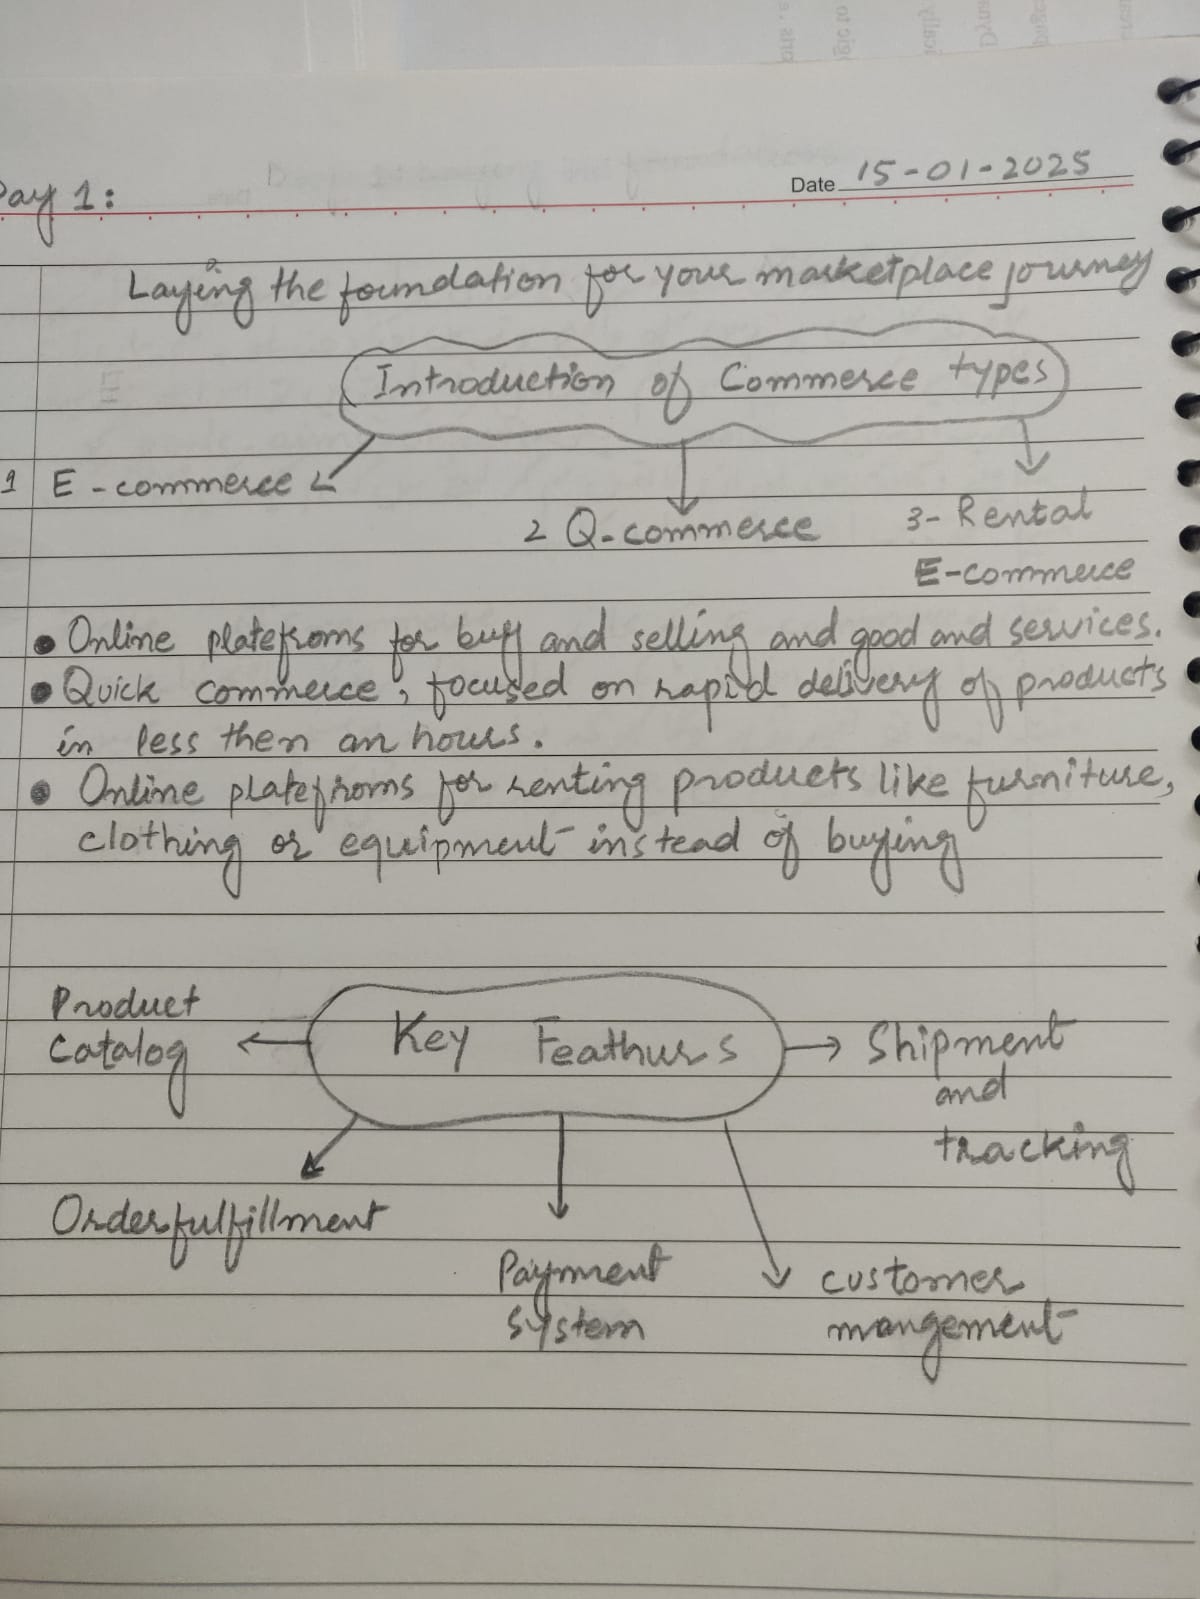 Date 15-01-2025
Day 1:
Laying the foundation for your marketplace journey
Introduction of Commerce types
1 E-commerce
2 Q-commerce
3- Rental
E-commerce
• Online platefroms for buy and selling and good and services.
• Quick commerce, focused on rapid delivery of products
in less then an hours.
• Online platefroms for renting products like furniture,
clothing or equipment instead of buying
Key Feathurs
Product
Catalog
Shipment
and
tracking
Order fulfillment
Payment
System
customer
mangement